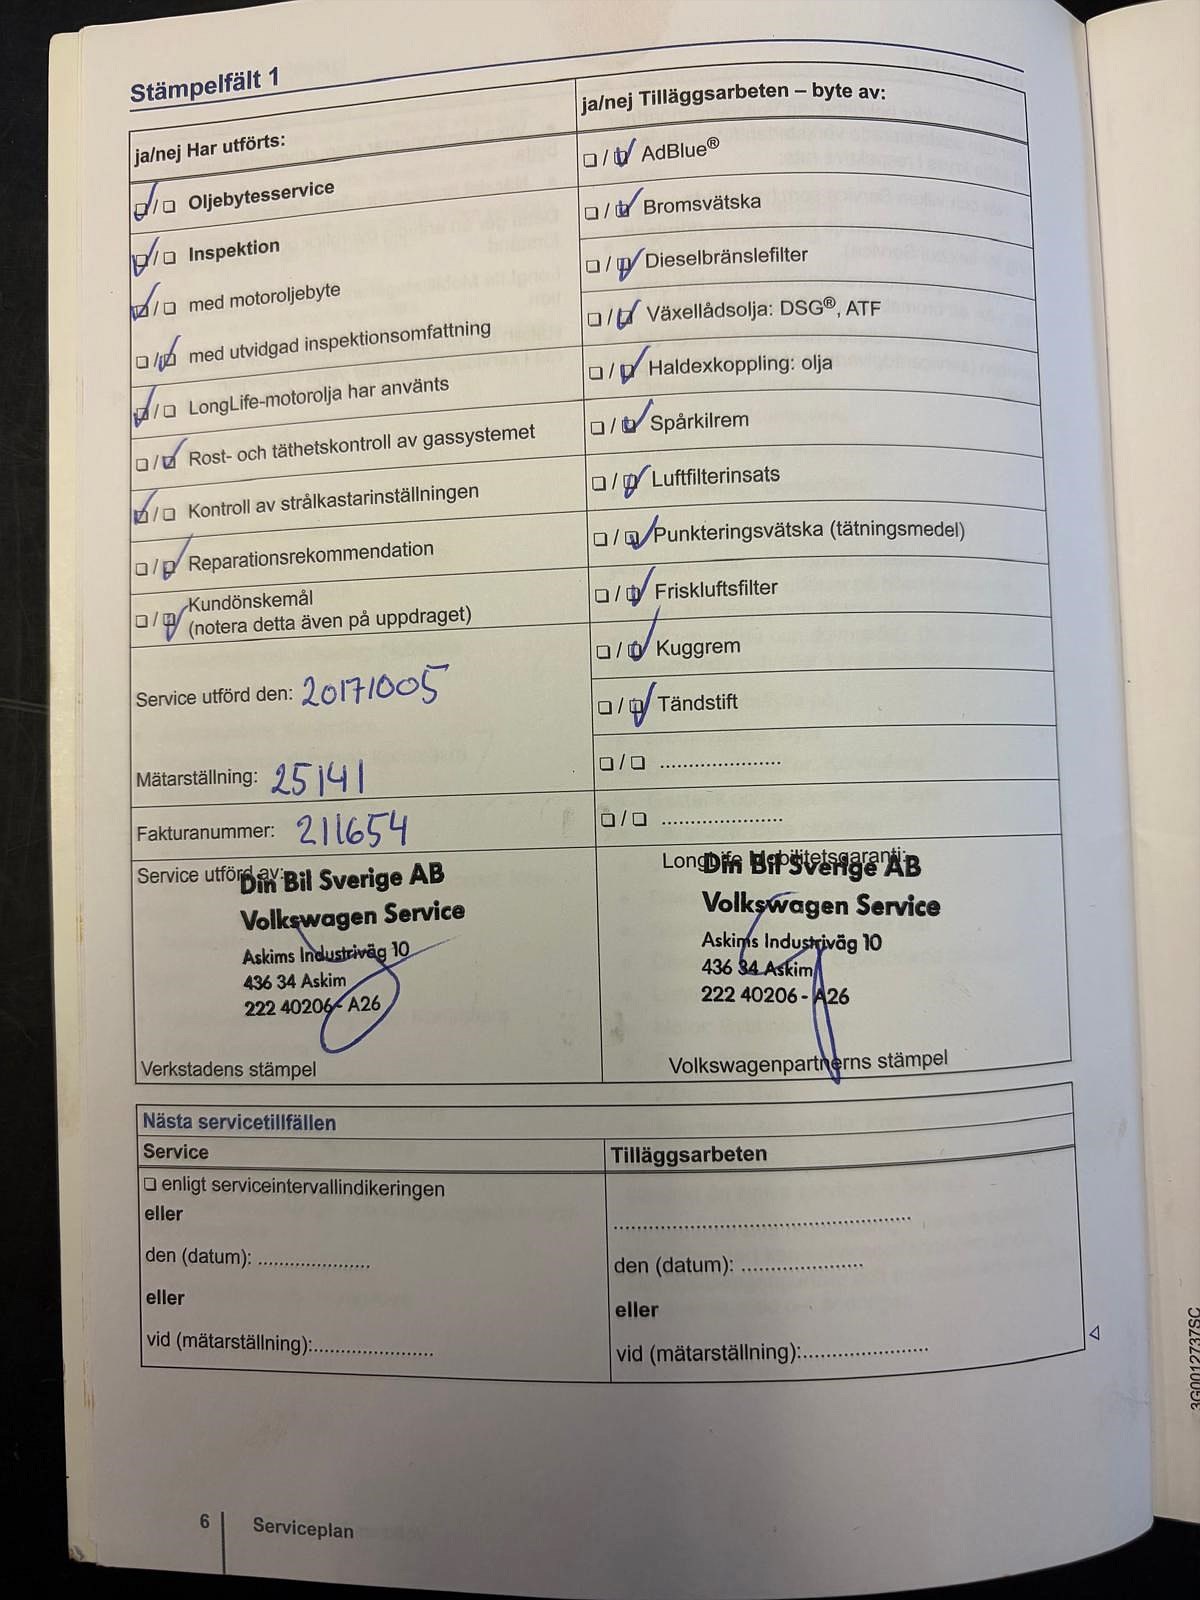 Stämpelfält 1
ja/nej Har utförts:
☑ / ❏ Oljebytesservice
☑ / ❏ Inspektion
☑ / ❏ med motoroljebyte
❏ / ☑ med utvidgad inspektionsomfattning
☑ / ❏ LongLife-motorolja har använts
❏ / ☑ Rost- och täthetskontroll av gassystemet
☑ / ❏ Kontroll av strålkastarinställningen
❏ / ☑ Reparationsrekommendation
❏ / ☑ Kundönskemål
(notera detta även på uppdraget)
Service utförd den: 20171005
Mätarställning: 25141
Fakturanummer: 211654
ja/nej Tilläggsarbeten – byte av:
❏ / ☑ AdBlue®
❏ / ☑ Bromsvätska
❏ / ☑ Dieselbränslefilter
❏ / ☑ Växellådsolja: DSG®, ATF
❏ / ☑ Haldexkoppling: olja
❏ / ☑ Spårkilrem
❏ / ☑ Luftfilterinsats
❏ / ☑ Punkteringsvätska (tätningsmedel)
❏ / ☑ Friskluftsfilter
❏ / ☑ Kuggrem
❏ / ☑ Tändstift
❏ / ❏ .....................
❏ / ❏ .....................
Service utförd av:
Din Bil Sverige AB
Volkswagen Service
Askims Industriväg 10
436 34 Askim
222 40206 - A26
Verkstadens stämpel
LongLife Mobilitetsgaranti:
Din Bil Sverige AB
Volkswagen Service
Askims Industriväg 10
436 34 Askim
222 40206 - A26
Volkswagenpartnerns stämpel
Nästa servicetillfällen
Service
❏ enligt serviceintervallindikeringen
eller
den (datum): .....................
eller
vid (mätarställning):.....................
Tilläggsarbeten
.....................................................
den (datum): .....................
eller
vid (mätarställning):.....................
6 Serviceplan
3G0012737SC